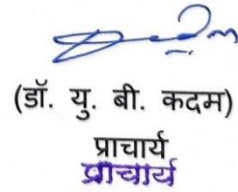 (डॉ. यु. बी. कदम)
प्राचार्य
प्राचार्य